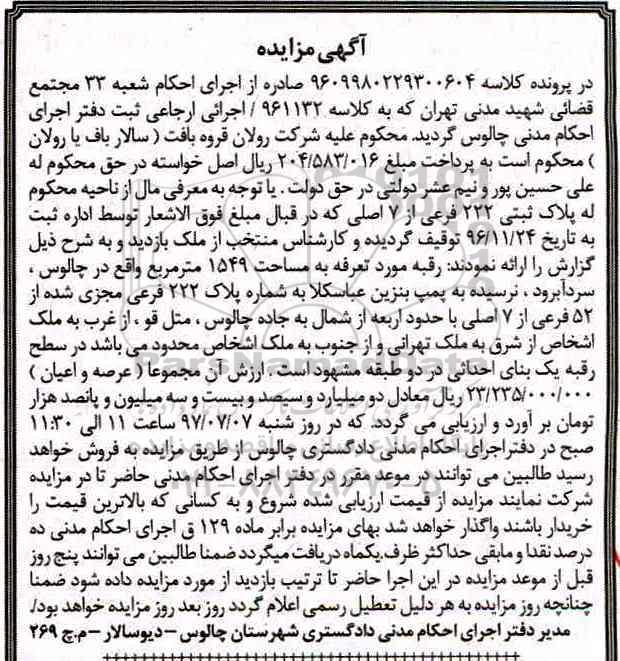 آگهی مزایده
در پرونده کلاسه ۹۶۰۹۹۸۰۲۲۹۳۰۰۶۰۴ صادره از اجرای احکام شعبه ۳۳ مجتمع
قضائی شهید مدنی تهران که به کلاسه ۹۶۱۱۳۲ / اجرائی ارجاعی ثبت دفتر اجرای
احکام مدنی چالوس گردید. محکوم علیه شرکت رولان قروه بافت ( سالار باف یا رولان
) محکوم است به پرداخت مبلغ ۲۰۴/۵۸۳/۰۱۶ ریال اصل خواسته در حق محکوم له
علی حسین پور و نیم عشر دولتی در حق دولت . با توجه به معرفی مال از ناحیه محکوم
له پلاک ثبتی ۲۲۲ فرعی از ۷ اصلی که در قبال مبلغ فوق الاشعار توسط اداره ثبت
به تاریخ ۹۶/۱۱/۲۴ توقیف گردیده و کارشناس منتخب از ملک بازدید و به شرح ذیل
گزارش را ارائه نمودند: رقبه مورد تعرفه به مساحت ۱۵۴۹ مترمربع واقع در چالوس ،
سردآبرود ، نرسیده به پمپ بنزین عباسکلا به شماره پلاک ۲۲۲ فرعی مجزی شده از
۵۲ فرعی از ۷ اصلی با حدود اربعه از شمال به جاده چالوس ، متل قو ، از غرب به ملک
اشخاص از شرق به ملک تهرانی و از جنوب به ملک اشخاص محدود می باشد در سطح
رقبه یک بنای احداثی در دو طبقه مشهود است . ارزش آن مجموعا ( عرصه و اعیان )
۲۳/۲۳۵/۰۰۰/۰۰۰ ریال معادل دو میلیارد و سیصد و بیست و سه میلیون و پانصد هزار
تومان بر آورد و ارزیابی می گردد. که در روز شنبه ۹۷/۰۷/۰۷ ساعت ۱۱ الی ۱۱:۳۰
صبح در دفتراجرای احکام مدنی دادگستری چالوس از طریق مزایده به فروش خواهد
رسید طالبین می توانند در موعد مقرر در دفتر اجرای احکام مدنی حاضر تا در مزایده
شرکت نمایند مزایده از قیمت ارزیابی شده شروع و به کسانی که بالاترین قیمت را
خریدار باشند واگذار خواهد شد بهای مزایده برابر ماده ۱۲۹ ق اجرای احکام مدنی ده
درصد نقدا و مابقی حداکثر ظرف یکماه دریافت میگردد ضمنا طالبین می توانند پنج روز
قبل از موعد مزایده در این اجرا حاضر تا ترتیب بازدید از مورد مزایده داده شود ضمنا
چنانچه روز مزایده به هر دلیل تعطیل رسمی اعلام گردد روز بعد روز مزایده خواهد بود/.
مدیر دفتر اجرای احکام مدنی دادگستری شهرستان چالوس –دیوسالار –م.چ ۲۶۹